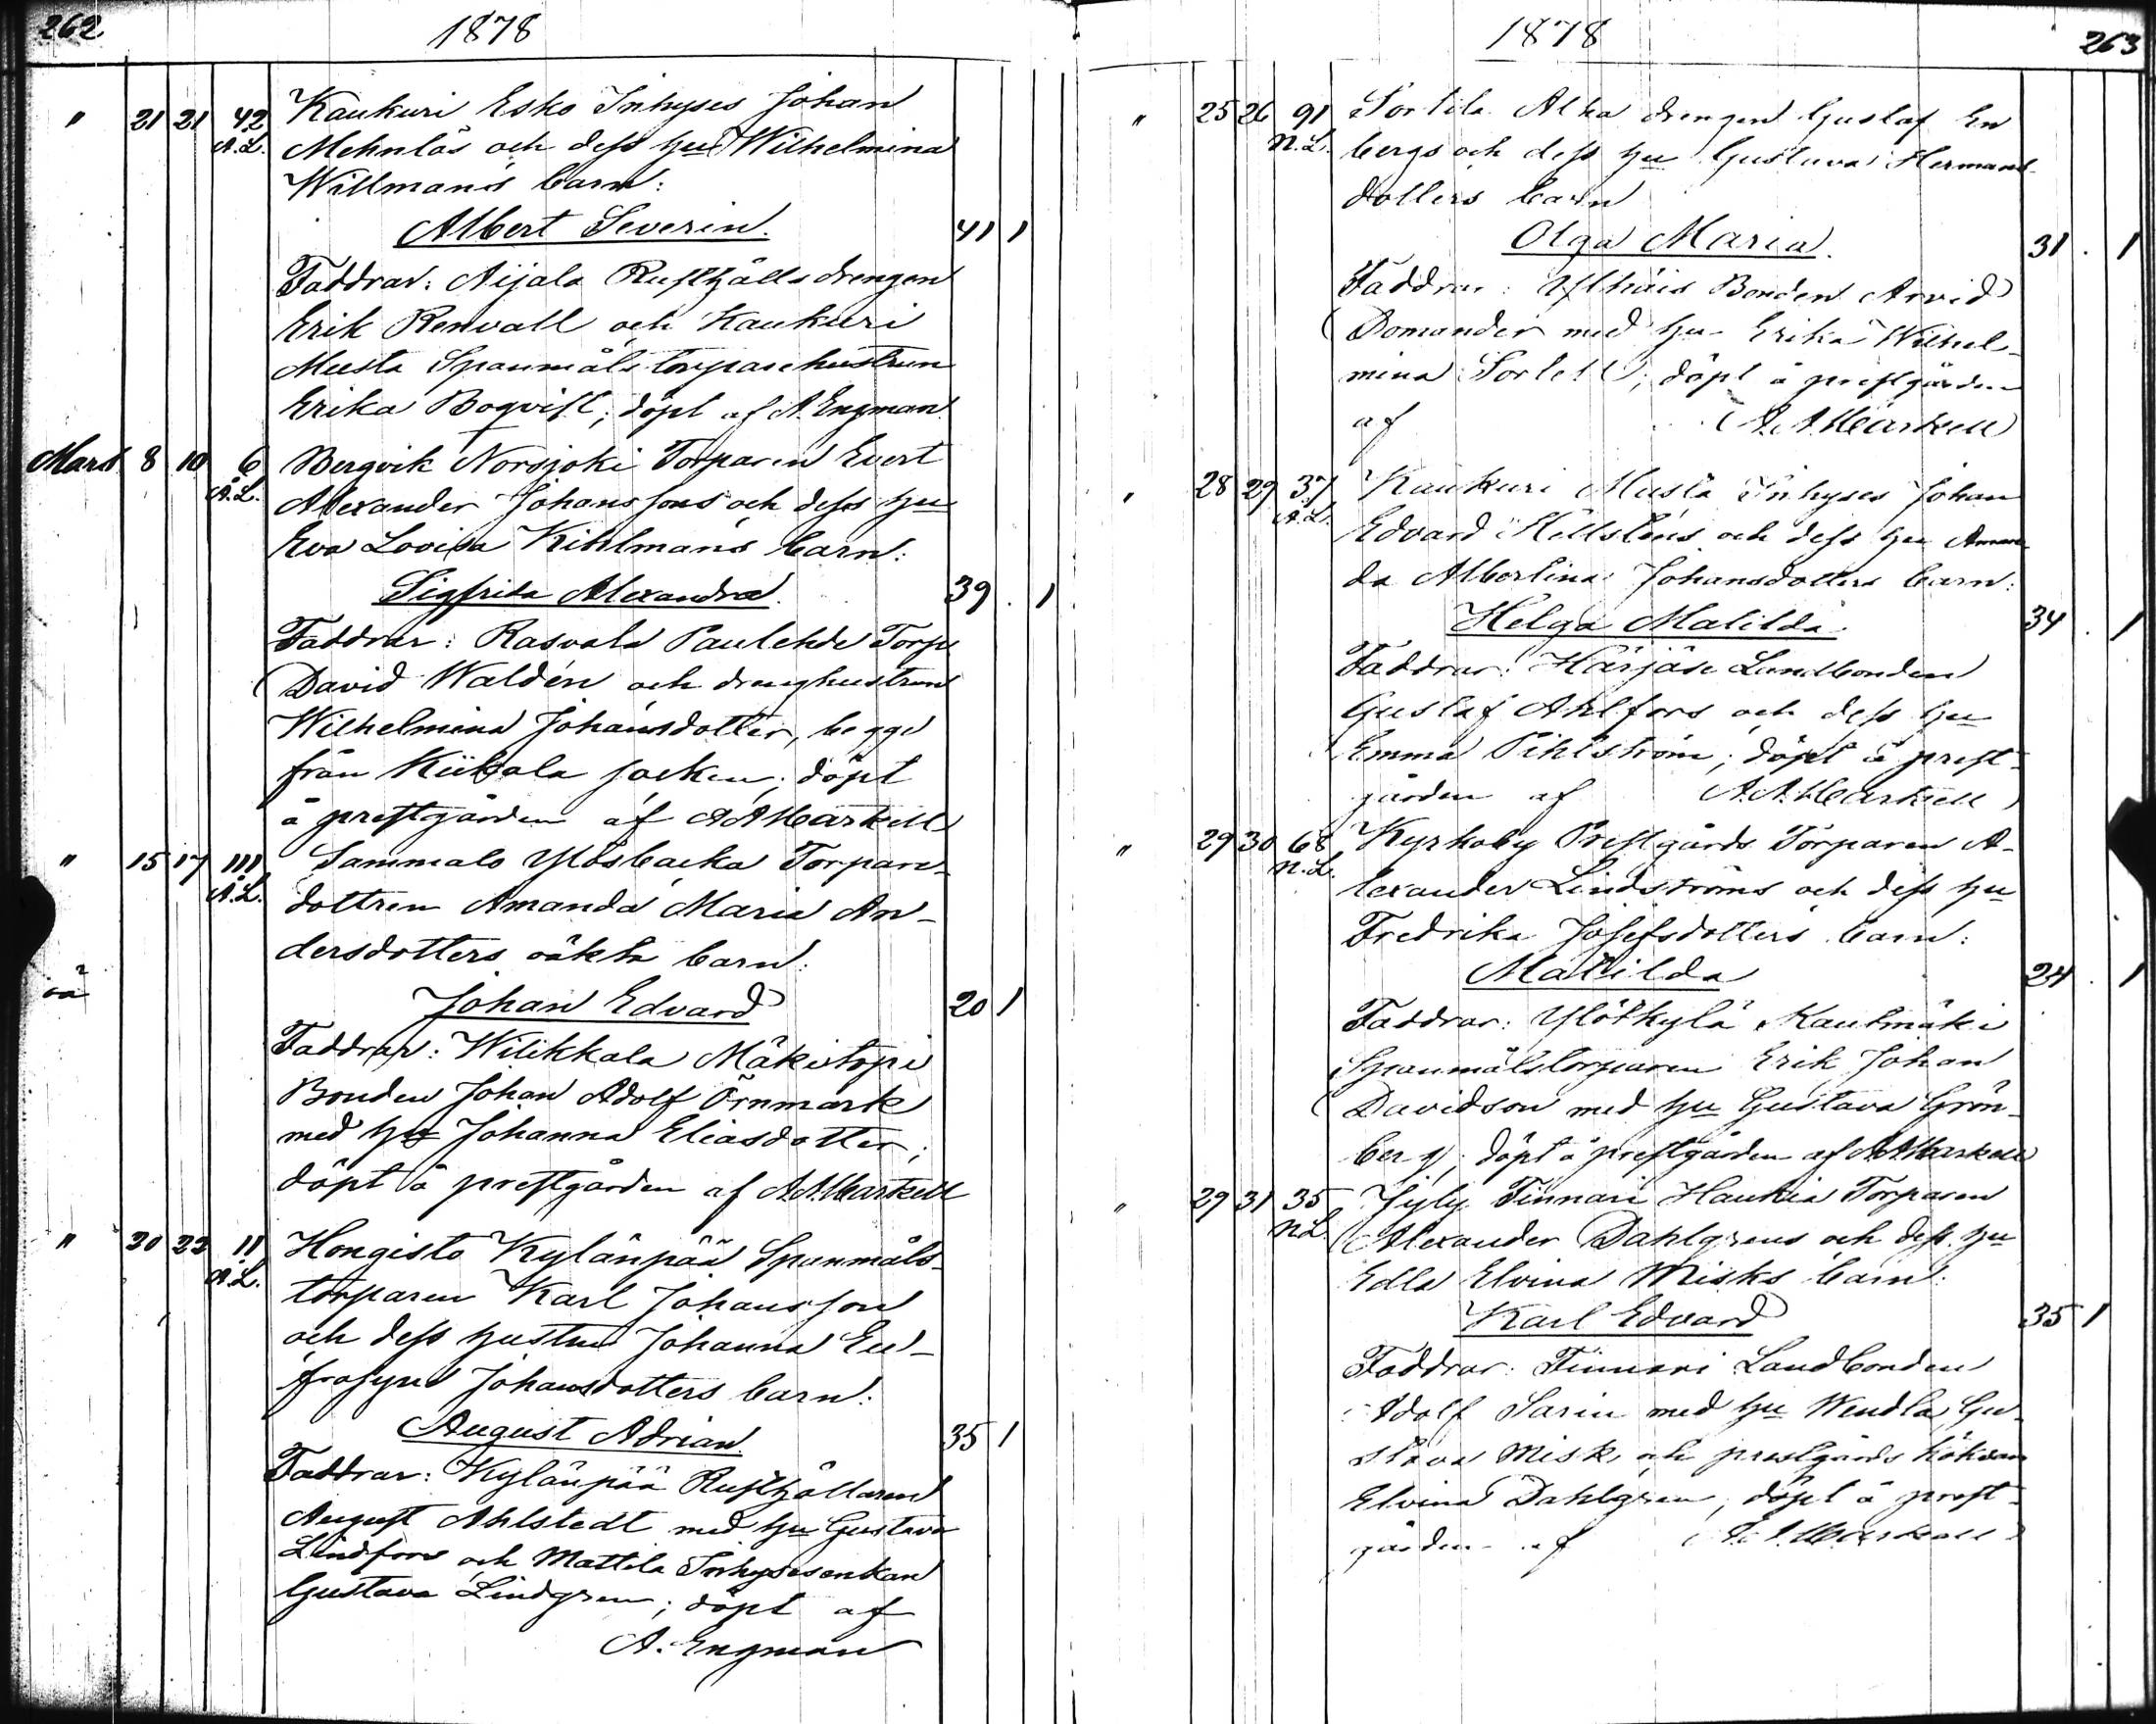 262
1878
" 21 21 42 Kaukuri Esko Inhyses Johan
A.L. Mehnlös och dess hu Wilhelmina
Willmans barn:
Albert Severin. 41 1
Faddrar: Aijala Rusthålls drengen
Erik Renvall och Kaukuri
Musta Spanmåls torpare hustrun
Erika Boqvist; döpt af A. Engman.
Mars 8 10 6 Bergvik Norsjoki Torparen Evert
A.L. Alexander Johanssons och dess hu
Eva Lovisa Kihlmans barn:
Sigfrida Alexandra. 39 . 1
Faddrar: Rasvala Paulehde Torp
David Waldén och dreng hustrun
Wilhelmina Johansdotter, begge
från Kiikala socken; döpt
å prestgården af A A Markell
" 15 17 111 Sammalo Ylösbacka Torpare
A.L. dottren Amanda Maria An-
dersdotters oäkta barn:
oä
Johan Edvard 20 1
Faddrar: Wilikkala Mäkitopi
Bonden Johan Adolf Örnmark
med hu Johanna Eliasdotter;
döpt å prestgården af A A Markell
" 20 22 11 Hongisto Kylänpää Spanmåls
A.L. torparen Karl Johansson
och dess hustru Johanna Eu-
frosyne Johansdotters barn:
August Adrian. 35 1
Faddrar: Kylänpää Rusthållaren
August Ahlstedt med hu Gustava
Lindfors och Mattila Inhysesenkan
Gustava Lindgren; döpt af
A. Engman
1878
263
" 25 26 91 Sortila Alha drengen Gustaf En
N.L. bergs och dess hu Gustava Hermans-
dotters barn
Olga Maria. 31 . 1
Faddrar: Bonden Arvid
Domander med hu Erika Wilhel-
mina döpt å prestgården
af A. A. Markell
" 28 29 37 Kaukuri Musta Inhyses Johan
A.L. Edvard Hellsténs och dess hu Aman
da Albertina Johansdotters barn:
Helga Matilda 34 . 1
Faddrar: Härjäse Landbonden
Gustaf Ahlfors och dess hu
Emma Pihlström; döpt å prest-
gården af A. A. Markell
" 29 30 68 Kyrkoby Prestgårds Torparen A-
N.L. lexander Lindströms och dess hu
Fredrika Josefsdotters barn:
Matilda 24 . 1
Faddrar: Ylöskylä Kaukmäki
Spanmålstorparen Erik Johan
Davidson med hu Gustava Grön-
berg; döpt å prestgården af A A Markell
" 29 31 35 Jyly Finnari Haukia Torparen
N.L. Alexander Dahlgrens och dess hu
Edla Elvina Misks barn:
Karl Edvard 35 1
Faddrar: Finnari Landbonden
Adolf Sarin med hu Wendla Gu-
stava Misk och prestgårds
Elvina Dahlgren; döpt å prest-
gården af A. A. Markell